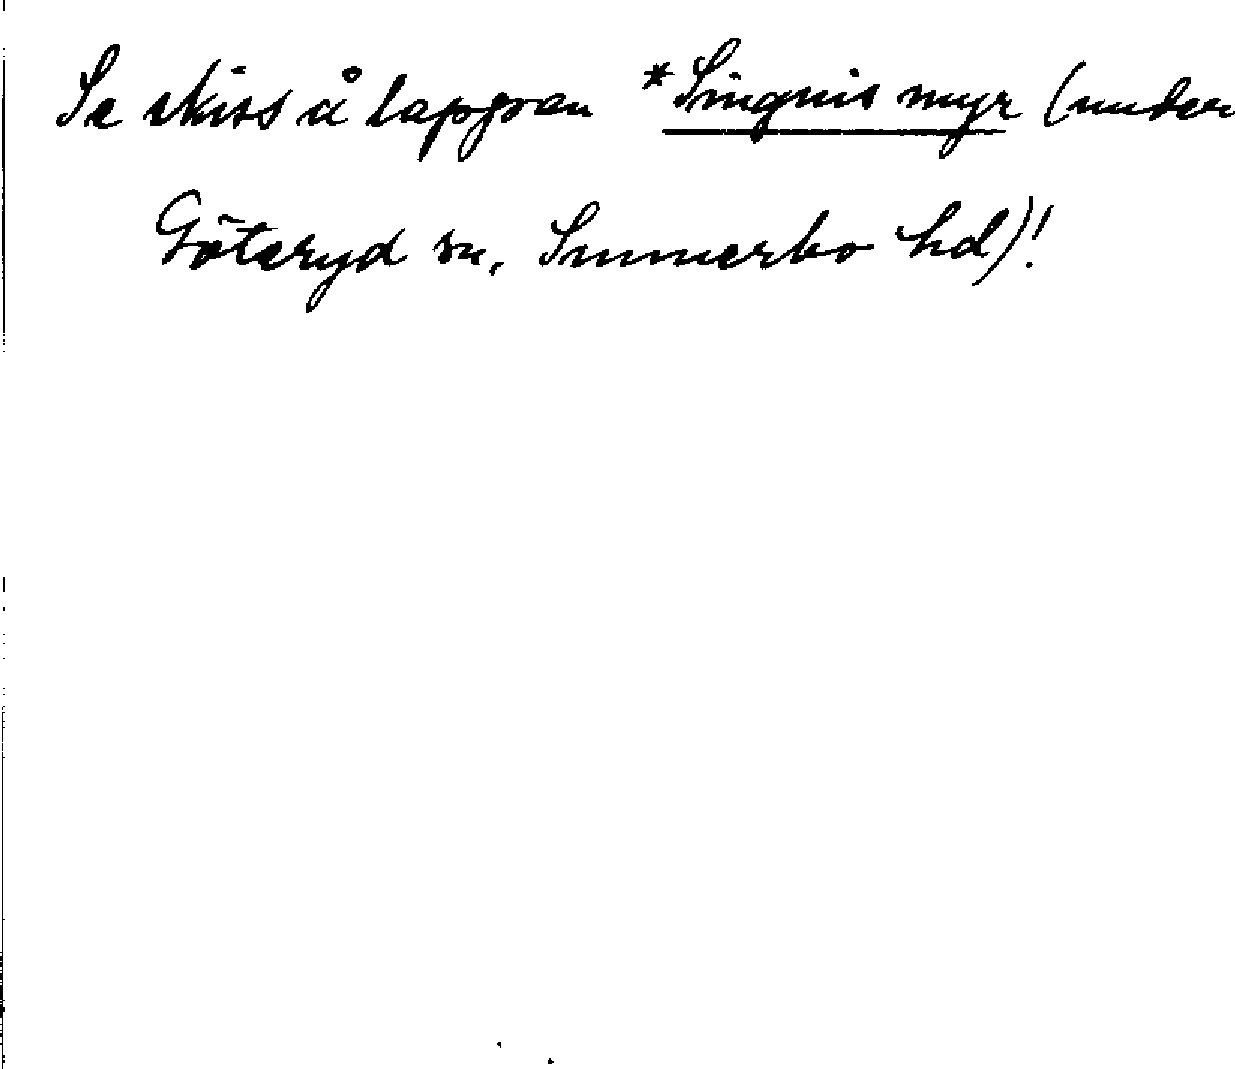 Se skiss å lappen *Singnis myr (under
Göteryd sn, Sunnerbo hd)!